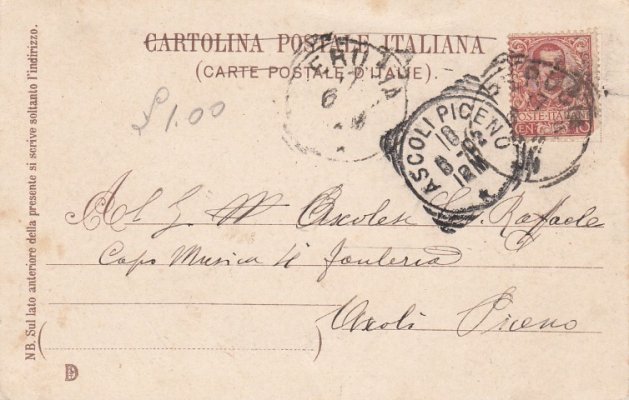 CARTOLINA POSTALE ITALIANA
(CARTE POSTALE D'ITALIE).
£1.00
POSTE ITALIANE
ASCOLI PICENO
18
12 M
6
Al S. M. Ascolese Raffaele
Capo Musica Fanteria
Ascoli Piceno
NB. Sul lato anteriore della presente si scrive soltanto l'indirizzo.